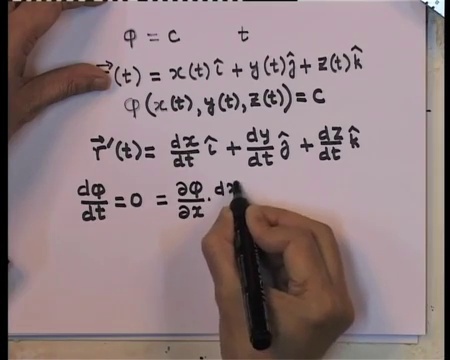 φ = c t
r⃗(t) = x(t)î + y(t)ĵ + z(t)k̂
φ(x(t), y(t), z(t)) = c
r⃗'(t) = dx/dt î + dy/dt ĵ + dz/dt k̂
dφ/dt = 0 = ∂φ/∂x · dx